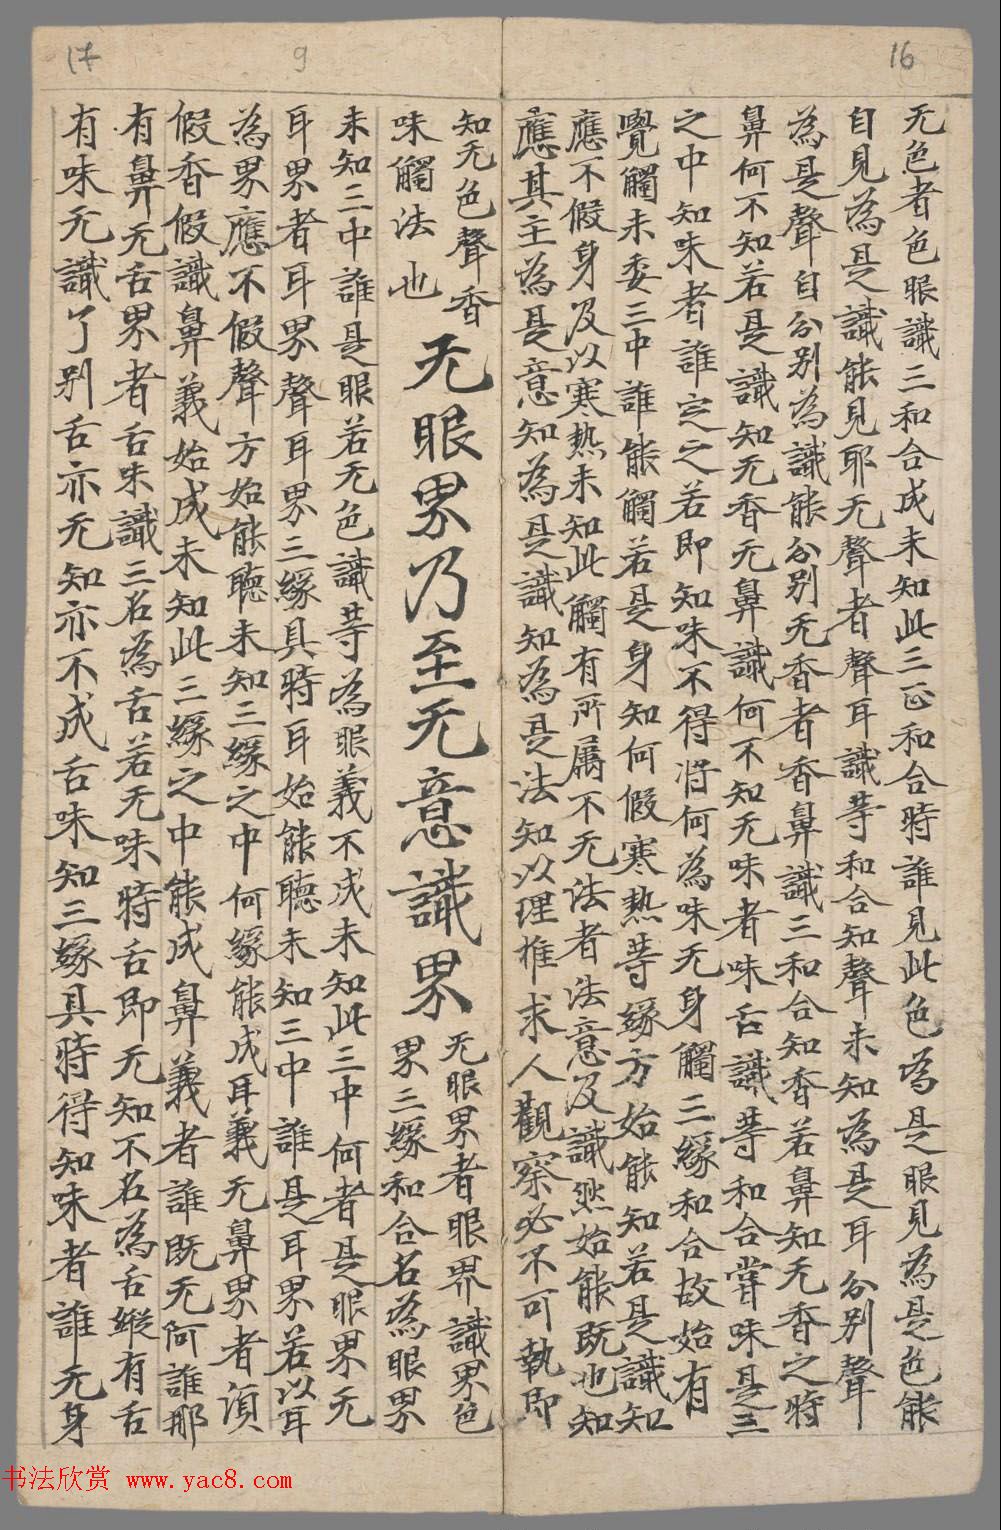 16
无色者色眼識三和合成未知此三正和合時誰見此色為是眼見為是色能
自見為是識能見耶无聲者聲耳識等和合知聲未知為是耳分別聲
為是聲自分別為識能分別无香者香鼻識三和合知香若鼻知无香之時
鼻何不知若是識知无香无鼻識何不知无味者味舌識等和合嘗味是三
之中知味者誰定之若即知味不得將何為味无身觸三緣和合故始有
覺觸未委三中誰能觸若是身知何假寒熱等緣方始能知若是識知
應不假身及以寒熱未知此觸有所屬不无法者法意及識然始能既也知
應其主為是意知為是識知為是法知以理推求人觀察必不可執即
知无色聲香
味觸法也
无眼界乃至无意識界
无眼界者眼界識界色
界三緣和合名為眼界
未知三中誰是眼若无色識等為眼義不成未知此三中何者是眼界无
耳界者耳界聲耳界三緣具時耳始能聽未知三中誰是耳界若以耳
為界應不假聲方始能聽未知三緣之中何緣能成耳義无鼻界者湏
假香假識鼻義始成未知此三緣之中能成鼻義者誰既无何誰那
有鼻无舌界者舌味識三名為舌若无味時舌即无知不名為舌縱有舌
有味无識了別舌亦无知亦不成舌味知三緣具時得知味者誰无身
9
17
书法欣赏 www.yac8.com